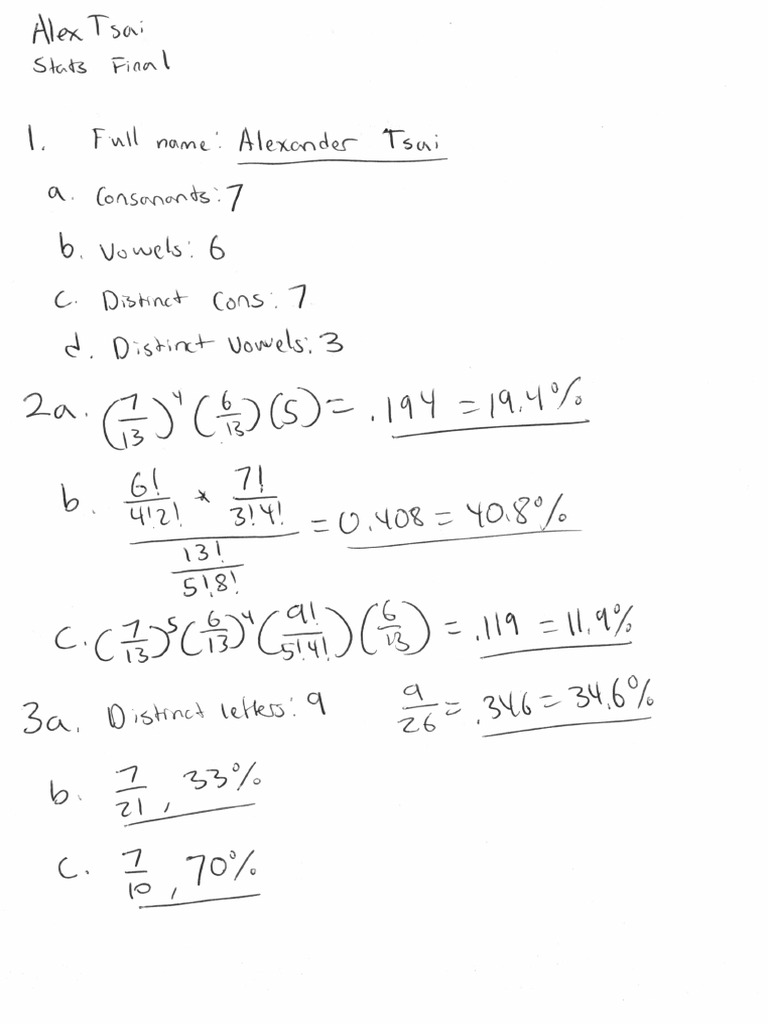 Alex Tsai
Stats Final
1. Full name: Alexander Tsai
a. Consanants: 7
b. Vowels: 6
c. Distinct Cons: 7
d. Distinct Vowels: 3
2a. (7/13)^4 (6/13) (5) = .194 = 19.4%
b. (6!/4!2! * 7!/3!4!) / (13!/5!8!) = 0.408 = 40.8%
c. (7/13)^5 (6/13)^4 (9!/5!4!) (6/13) = .119 = 11.9%
3a. Distinct letters: 9 9/26 = .346 = 34.6%
b. 7/21, 33%
c. 7/10, 70%